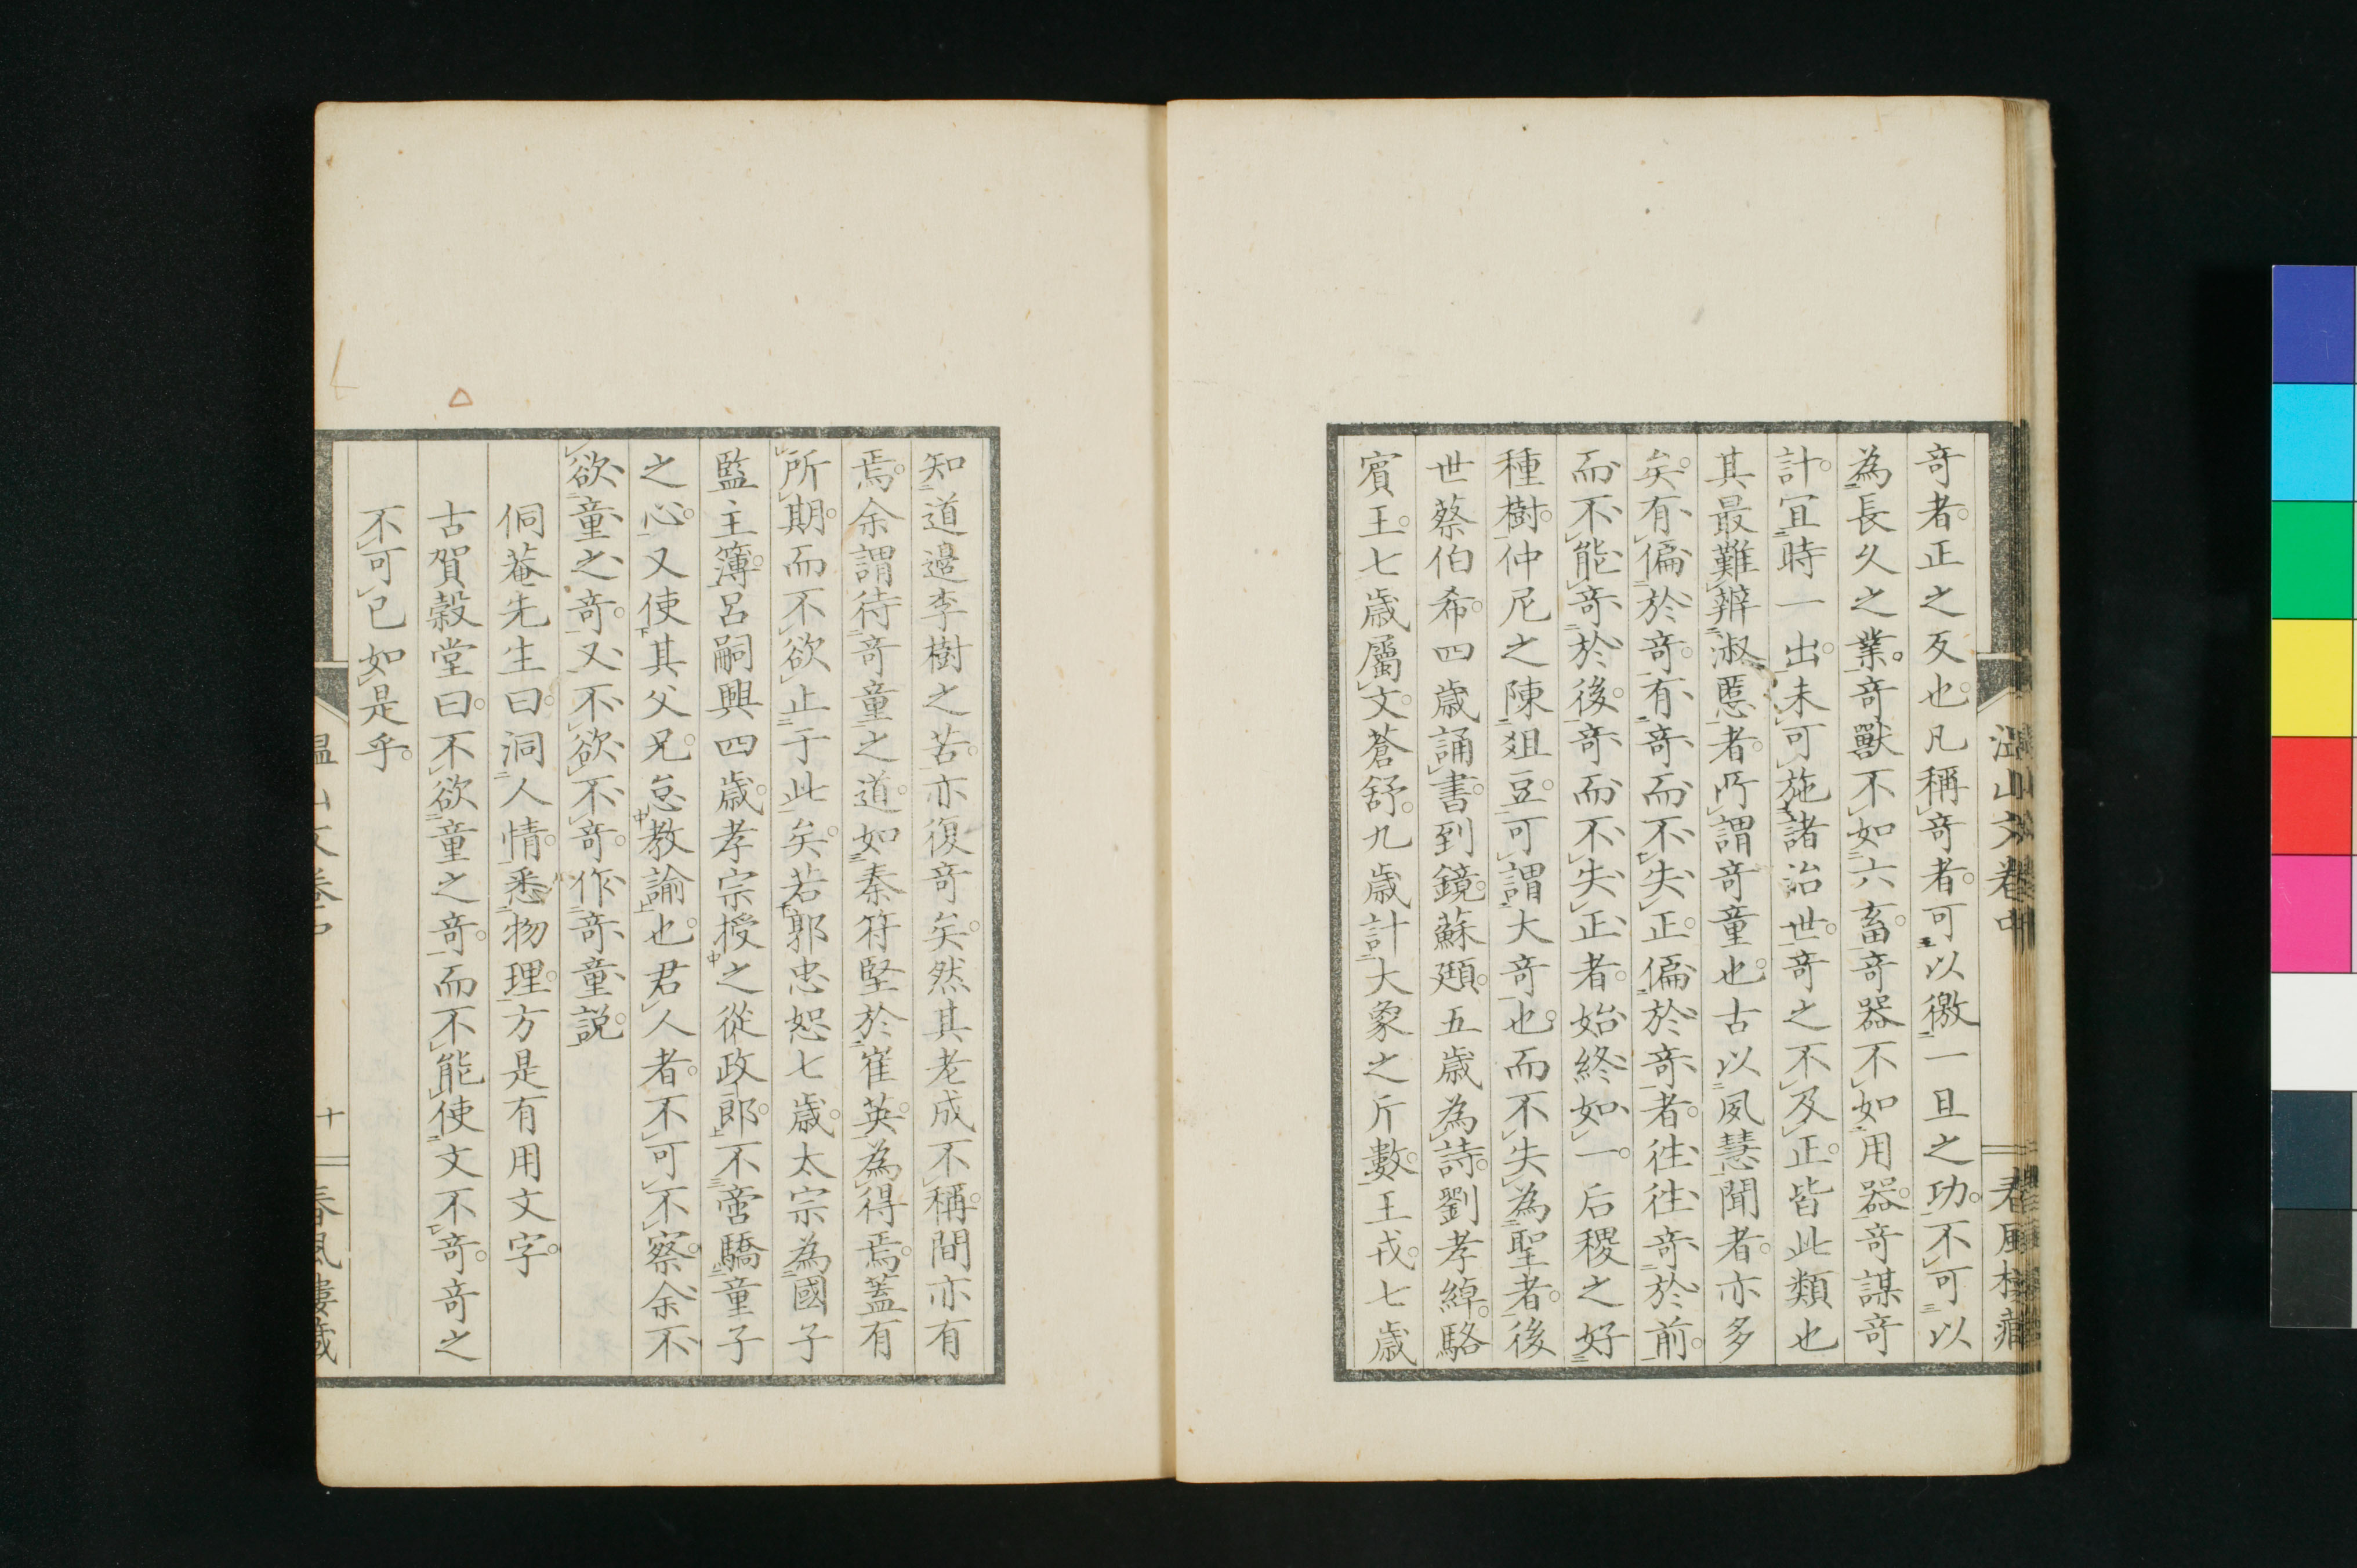 奇者。正之反也。凡稱奇者。可以徼一旦之功。不可以
為長久之業。奇獸不如六畜。奇器不如用器。奇謀奇
計。宜時一出。未可施諸治世。奇之不及正。皆此類也
其最難辨淑慝者。所謂奇童也。古以夙慧聞者。亦多
矣。有偏於奇。有奇而不失正。偏於奇者。往往奇於前。
而不能奇於後。奇而不失正者。始終如一。后稷之好
種樹。仲尼之陳俎豆。可謂大奇也。而不失為聖者。後
世蔡伯希。四歲誦書到鏡。蘇頲。五歲為詩。劉孝綽。駱
賓王。七歲屬文。蒼舒。九歲計大象之斤數。王戎。七歲
知道邊李樹之苦。亦復奇矣。然其老成不稱。間亦有
焉。余謂待奇童之道。如秦符堅於崔英。為得焉。蓋有
所期。而不欲止于此矣。若郭忠恕七歲。太宗為國子
監主簿。呂嗣興四歲。孝宗授之從政郎。不啻驕童子
之心。又使其父兄。怠教諭也。君人者。不可不察。余不
欲童之奇。又不欲不奇。作奇童說。
侗菴先生曰。洞人情。悉物理。方是有用文字。
古賀穀堂曰。不欲童之奇。而不能使文不奇。奇之
不可已如是乎。
溫山文卷中
十
春風樓藏